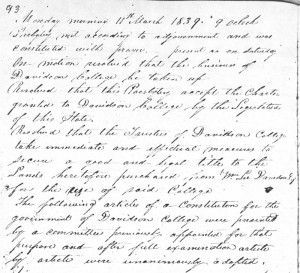 93
Monday morning 11th March 1839. 9 o'clock
Presbytery met according to adjournment and was
constituted with prayer. present as on Saturday
On motion resolved that the business of
Davidson College be taken up
Resolved that this Presbytery accept the Charter
granted to Davidson College by the Legislature
of this State.
Resolved that the Trustees of Davidson College
take immediate and effectual measures to
secure a good and legal title to the
Lands heretofore purchased from Wm Lee Davidson
for the use of said College
The following articles of a Constitution for the
government of Davidson College were presented
by a committee previously appointed for that
purpose and after full examination article
by article were unanimously adopted.